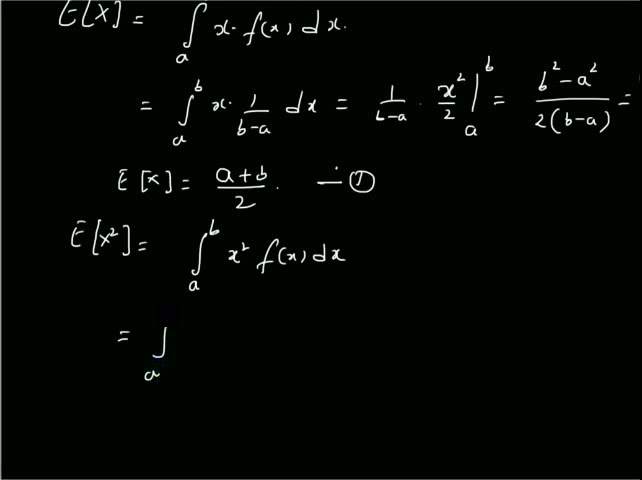 E[X] = ∫ₐ x· f(x) dx.
= ∫ₐᵇ x· 1/(b-a) dx = 1/(b-a) · x²/2 |ₐᵇ = (b²-a²)/(2(b-a)) =
E[x] = (a+b)/2 . —①
E[X²] = ∫ₐᵇ x² f(x) dx
= ∫ₐ